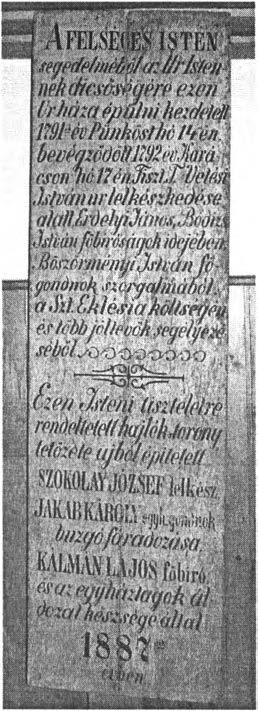 A FELSÉGES ISTEN
segedelméből az Úr Isten-
nek dicsőségére ezen
Úr háza épülni kezdetett
1791-év Pünköst hó 14én.
bevégződött 1792 év Kará
cson hó 17én. Tiszt. T. Vetési
István ur lelkészkedése
alatt Erdélyi János, Boóts
István főbiróságok idejében
Böszörményi István fő
gondnok szorgalmából
a Szt. Eklésia költségén
és több jóltevők segélyezé
séből.
Ezen Isteni tiszteletre
rendeltetett hajlék torony
tetőzete ujból épitetett
SZOKOLAY JÓZSEF lelkész,
JAKAB KÁROLY egyh. gondnok
buzgó fáradozása,
KÁLMÁN LAJOS főbiró,
és az egyháztagok ál
dozat készsége által
1887
évben